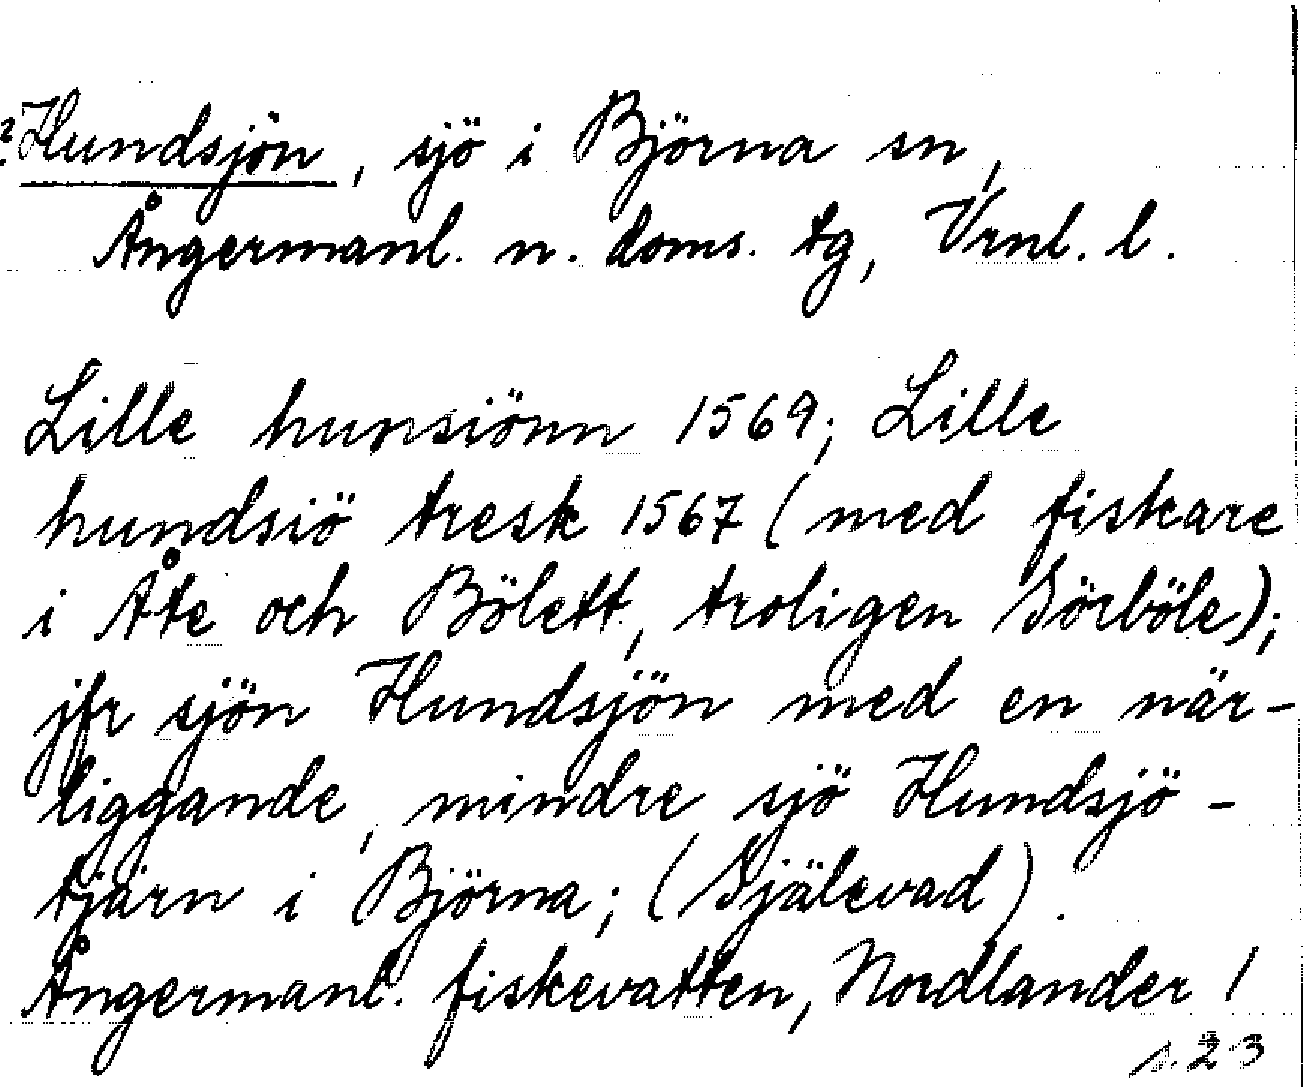 ? Hundsjön, sjö i Björna sn,
Ångermanl. n. doms. tg, Vrnl. l.
Lille hunsiönn 1569; Lille
hundsiö tresk 1567 (med fiskare
i Åte och Bölett, troligen Sörböle);
jfr sjön Hundsjön med en när-
liggande, mindre sjö Hundsjö-
tjärn i Björna; (Själevad).
Ångermanl. fiskevatten, Nordlander 1
s. 23